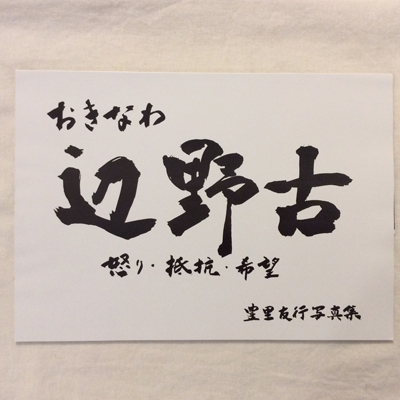 おきなわ
辺野古
怒り・抵抗・希望
豊里友行写真集